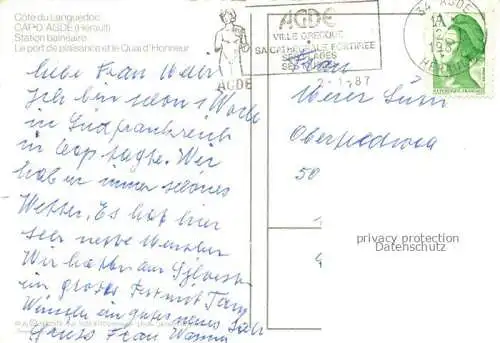 Côte du Languedoc
CAP D'AGDE (Hérault)
Station balnéaire
Le port de plaisance et le Quai d'Honneur
AGDE
AGDE
VILLE GRECQUE
SA CATHEDRALE FORTIFIEE
SES PLAGES
2-1.87
34 AGDE
HERAULT
liebe Frau
Ich bin schon 1 Woche
in Südfrankreich
in Cap Agde. Wir
haben immer schönes
Wetter. Es hat hier
sehr nette Menschen
Wir hatten am Sylvester
ein großes Fest mit Tanz
Wünsche ein gutes neues Jahr
Gruss Frau
Frau
50
privacy protection
Datenschutz